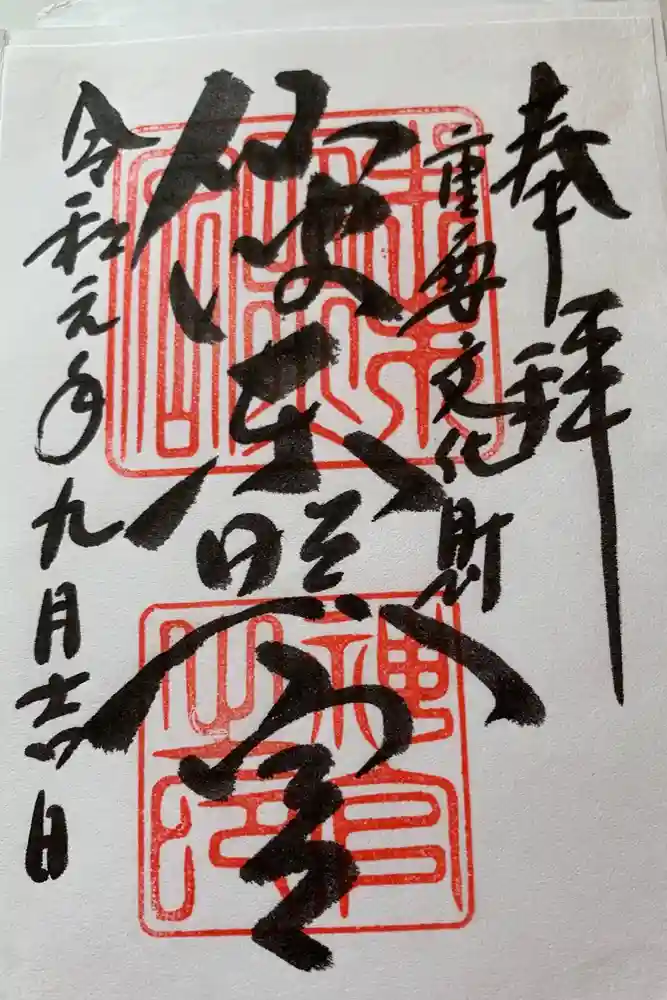 奉拝
重要文化財
仙波東照宮
令和元年九月吉日